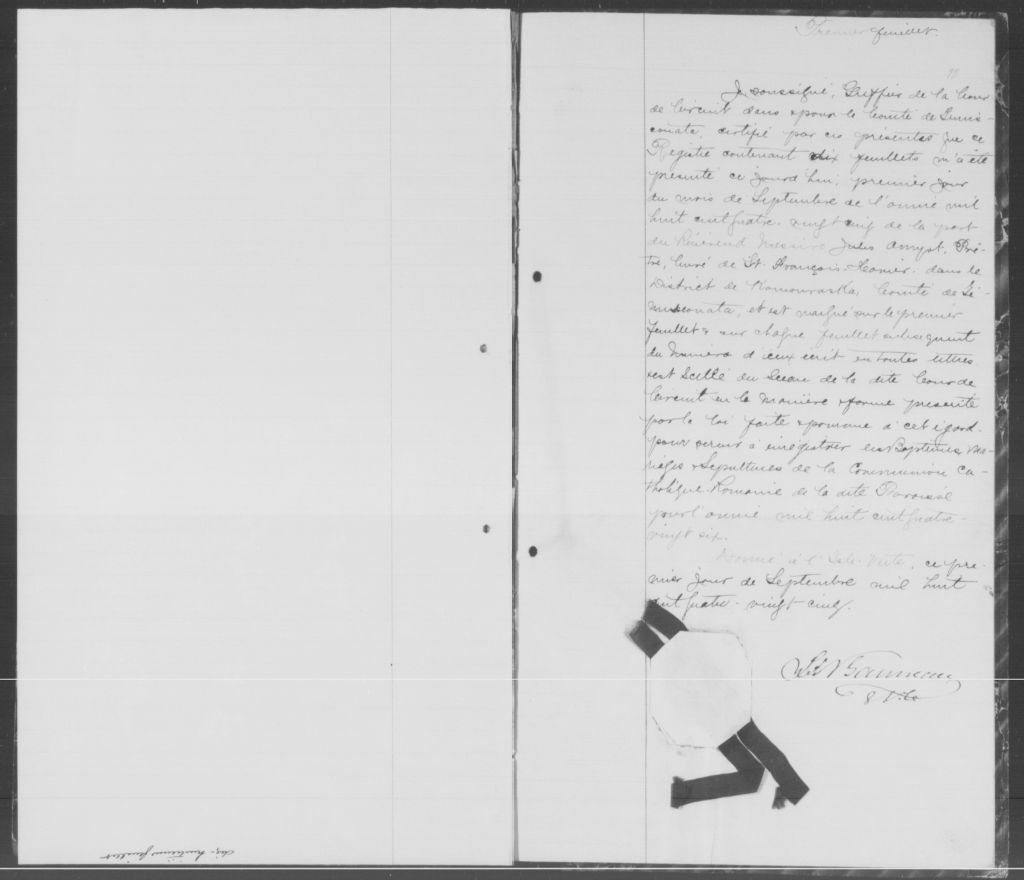 Premier feuillet.
Je, soussigné, Greffier de la Cour
de Circuit dans & pour le Comté de Temis-
couata, certifie par ces présentes que ce
Registre contenant dix feuillets m'a été
présenté ce jourd'hui, premier jour
du mois de Septembre de l'année mil
huit cent quatre-vingt cinq de la part
du Révérend Messire Jules Amyot, Prê-
tre, Curé de St. François-Xavier, dans le
District de Kamouraska, Comté de Té-
miscouata, et est marqué sur le premier
feuillet & sur chaque feuillet subséquent
du Numéro d'iceux écrit en toutes lettres
& est Scellé du Sceau de la dite Cour de
Circuit en la manière & forme
par la loi faite & pourvue à cet égard
pour servir à enrégistrer les Baptêmes, Ma-
riages & Sépultures de la Communion Ca-
tholique Romaine de la dite Paroisse
pour l'année mil huit cent quatre-
vingt six.
Donné à l'Isle-Verte, ce pre-
mier jour de Septembre mil huit
cent quatre-vingt cinq.
dix-huitième feuillet